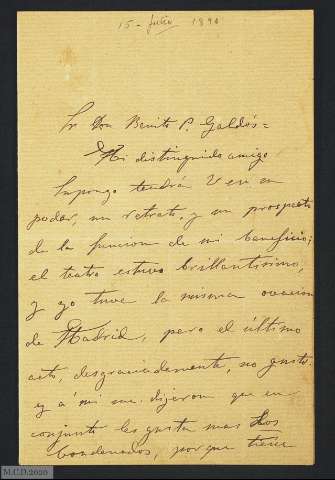 15 - Julio 1894
Sr Don Benito P. Galdós =
Mi distinguido amigo
Supongo tendrá V en su
poder, un retrato, y un prospecto
de la funcion de mi beneficio;
el teatro estuvo brillantisimo,
y yo tuve la misma ovacion
de Madrid, pero el último
acto, desgraciadamente, no gustó.
y á mi me dijeron que en
conjunto les gusta mas Los
Condenados, porque tiene
M.C.D.2020